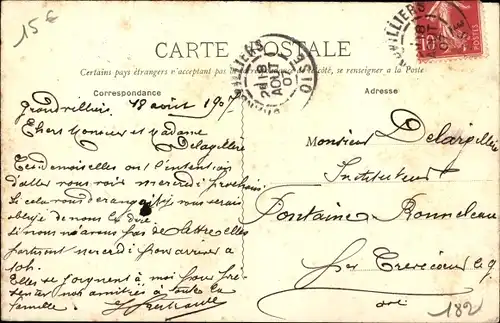 15 €
CARTE POSTALE
Certains pays étrangers n'acceptent pas la correspondance de ce côté, se renseigner à la Poste
Correspondance
Adresse
OISE
AOUT
07
10
Grandvilliers 18 août 1907
Chers Monsieur et Madame
Delargillière
Ces demoiselles ont l'intention
d'aller vous voir mercredi prochain
Si cela vous dérangeait vous serais
obligé de nous la dire
si nous n'avons pas de lettre elles
partiront mercredi pour arriver à
10h.
Elles se joignent à moi pour pré-
senter nos amitiés à toute la
famille.
Monsieur Delargillière
Instituteur
Fontaine Bonneleau
par Crèvecœur
182